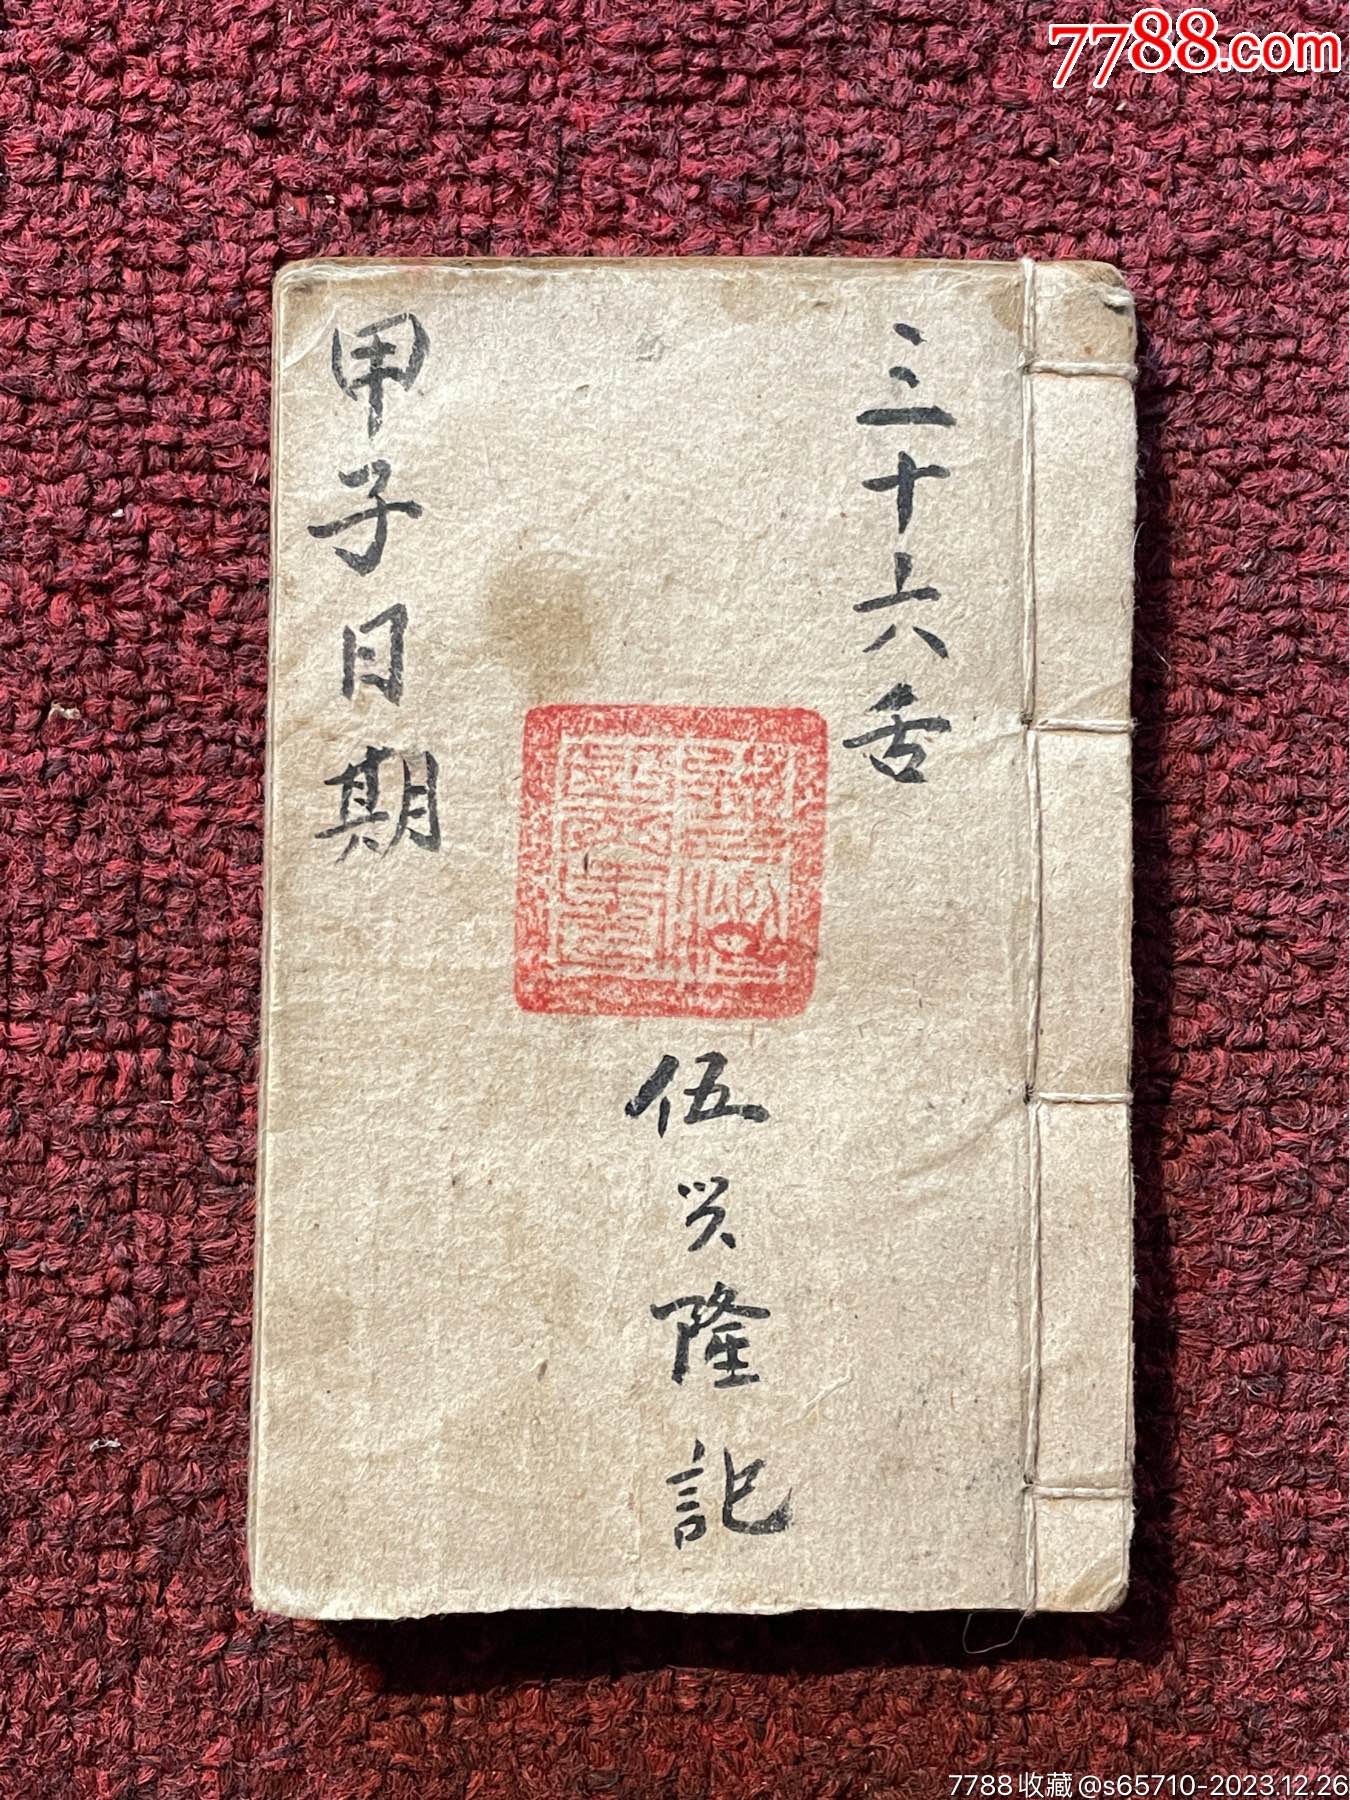 7788.com
三十六舌
伍兴隆記
甲子日期
7788收藏@s65710-2023.12.26